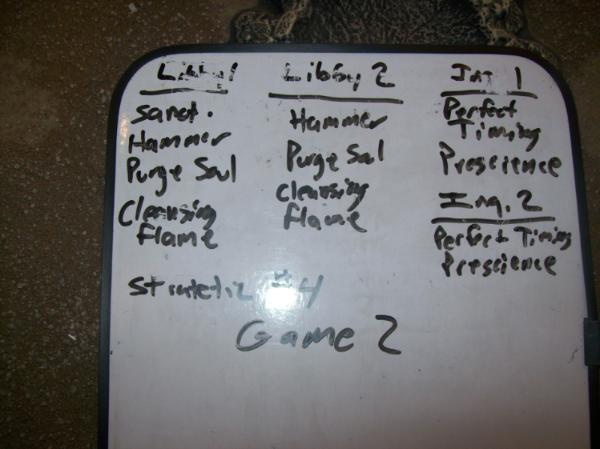 Libby 1
Sanct.
Hammer
Purge Soul
Cleansing
Flame
Libby 2
Hammer
Purge Soul
Cleansing
Flame
Inq 1
Perfect
Timing
Prescience
Inq. 2
Perfect Timing
Prescience
#4
Game 2